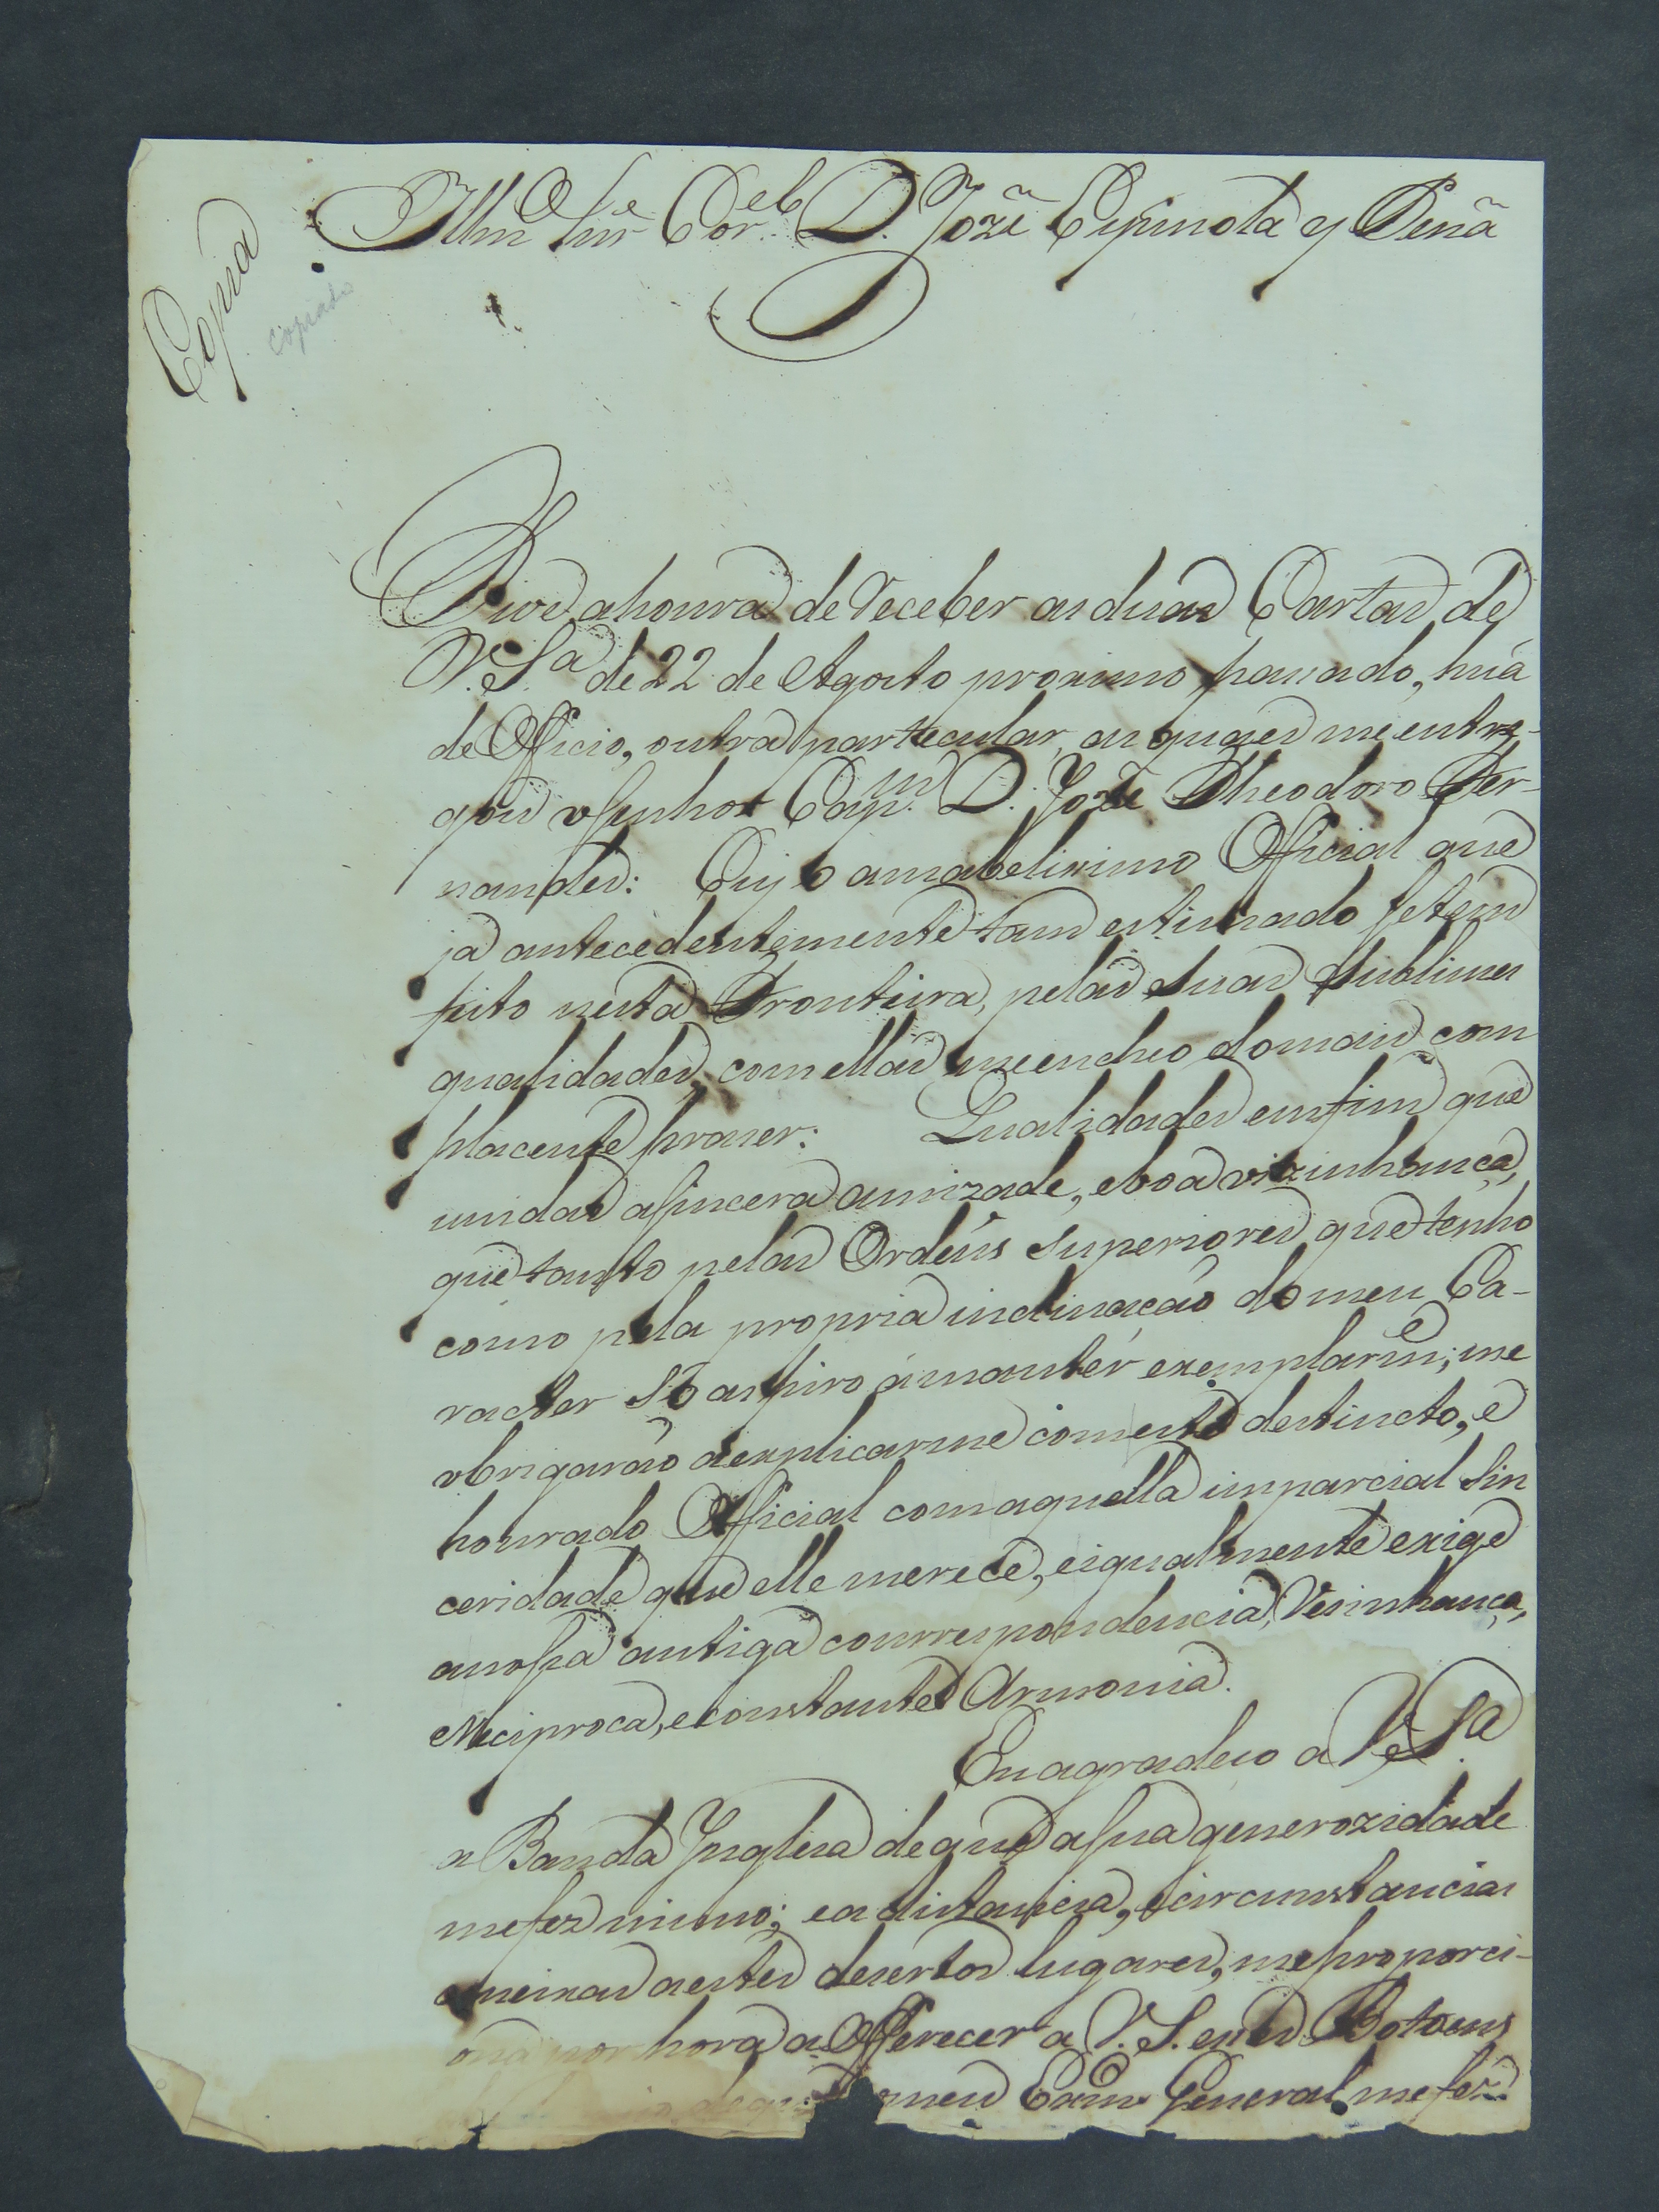 Copia
copiado
Illmo Snr Corel D. Jozé Espinola y Peña
Tive a honra de receber as duas Cartas de
V. Sa de 22 de Agosto proximo passado, huã
de Officio, outra partecular, as quaes me entre-
gou o Senhor Capm D. Jozé Theodoro Fer-
nandes: Cujo amabelisimo Official que
já antecedentemente tam estimado se tem
feito nesta Fronteira, pelas suas sublimes
qualidades, com ellas me encheo do mais com
placente praser: Qualidades emfim que
unidas a sincera amizade, e boa vizinhança,
que tanto pelas Ordeñs superiores que tenho
como pela propria inclinação do meu Ca-
racter só aspiro á mantér exemplarme; me
obrigarão a explicarme com este destincto, e
honrado Official com aquella imparcial sin
ceridade que elle merece, e igualmente exige
a nossa antiga courrespondencia, Vesinhança,
e Reciproca, e constante Armonia.
Eu agradeso a V. Sa
a Banda Ynglesa de que a sua generozidade
me fez mimo; e a distancia, e circunstancias
anneixas a estes desertos lugares, me proporci-
ona por hora a Offerecer a V. S. esses Botoens
de que o meu Exmo General me fez